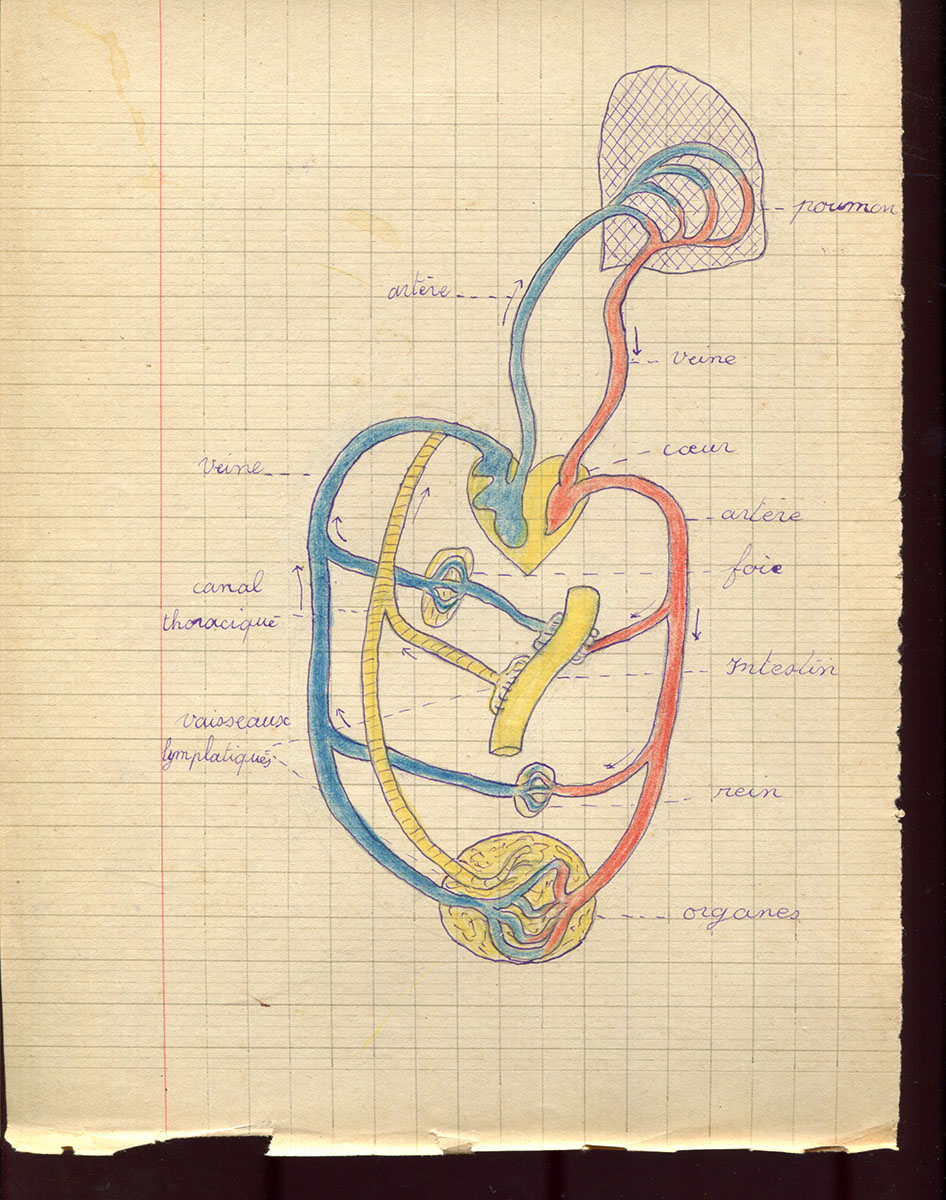 poumon
artère
veine
cœur
veine
artère
foie
canal
thoracique
Intestin
vaisseaux
lymplatiques
rein
organes